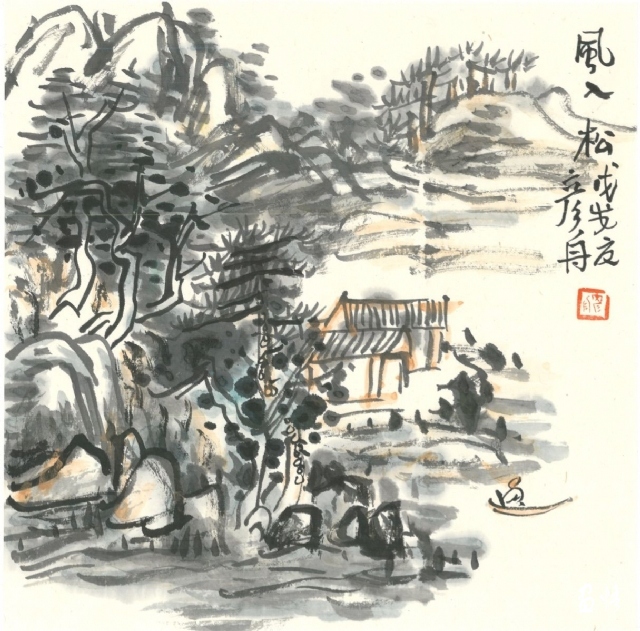 風入松
戊戌夏
彦舟